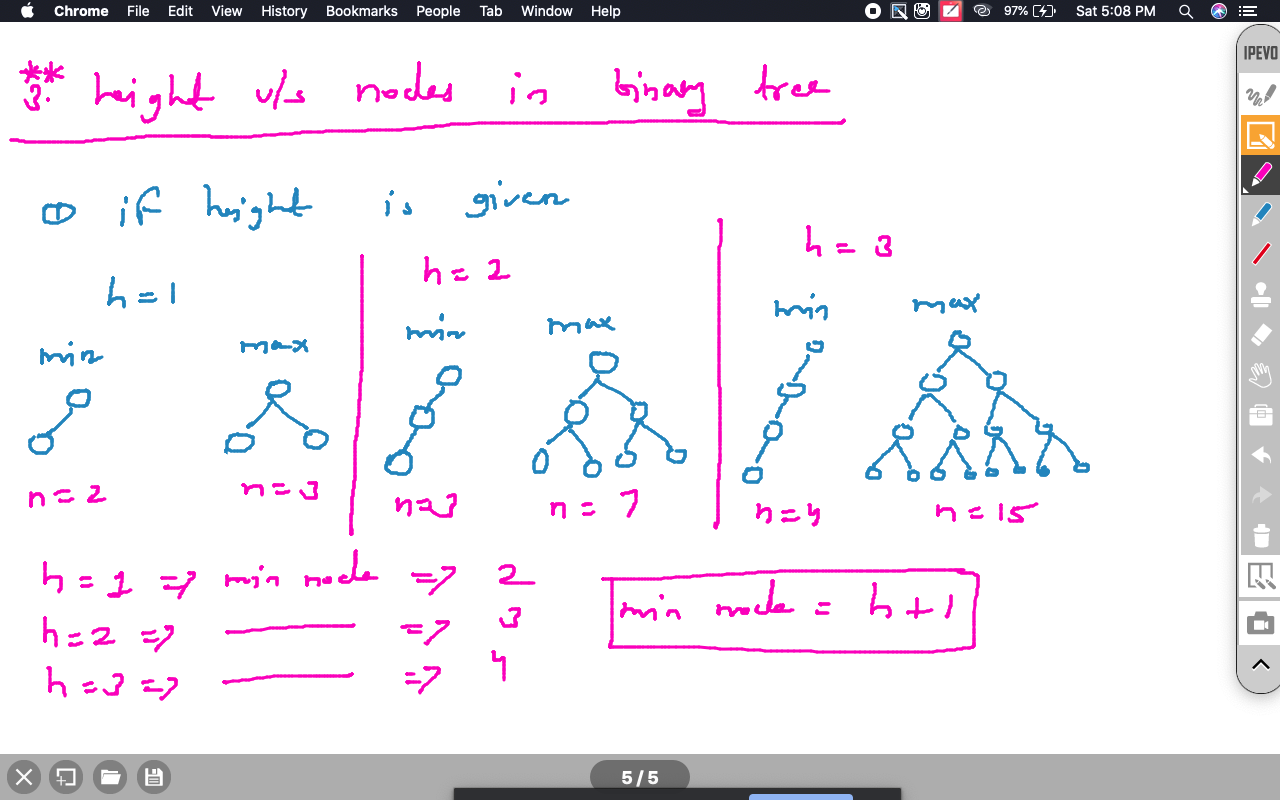 Chrome File Edit View History Bookmarks People Tab Window Help 97% Sat 5:08 PM
IPEVO
** 3. height v/s nodes in binary tree
① if height is given
h = 1
min max
n = 2 n = 3
h = 2
min max
n = 3 n = 7
h = 3
min max
n = 4 n = 15
h = 1 => min node => 2
h = 2 => ——— => 3
h = 3 => ——— => 4
min node = h + 1
5 / 5